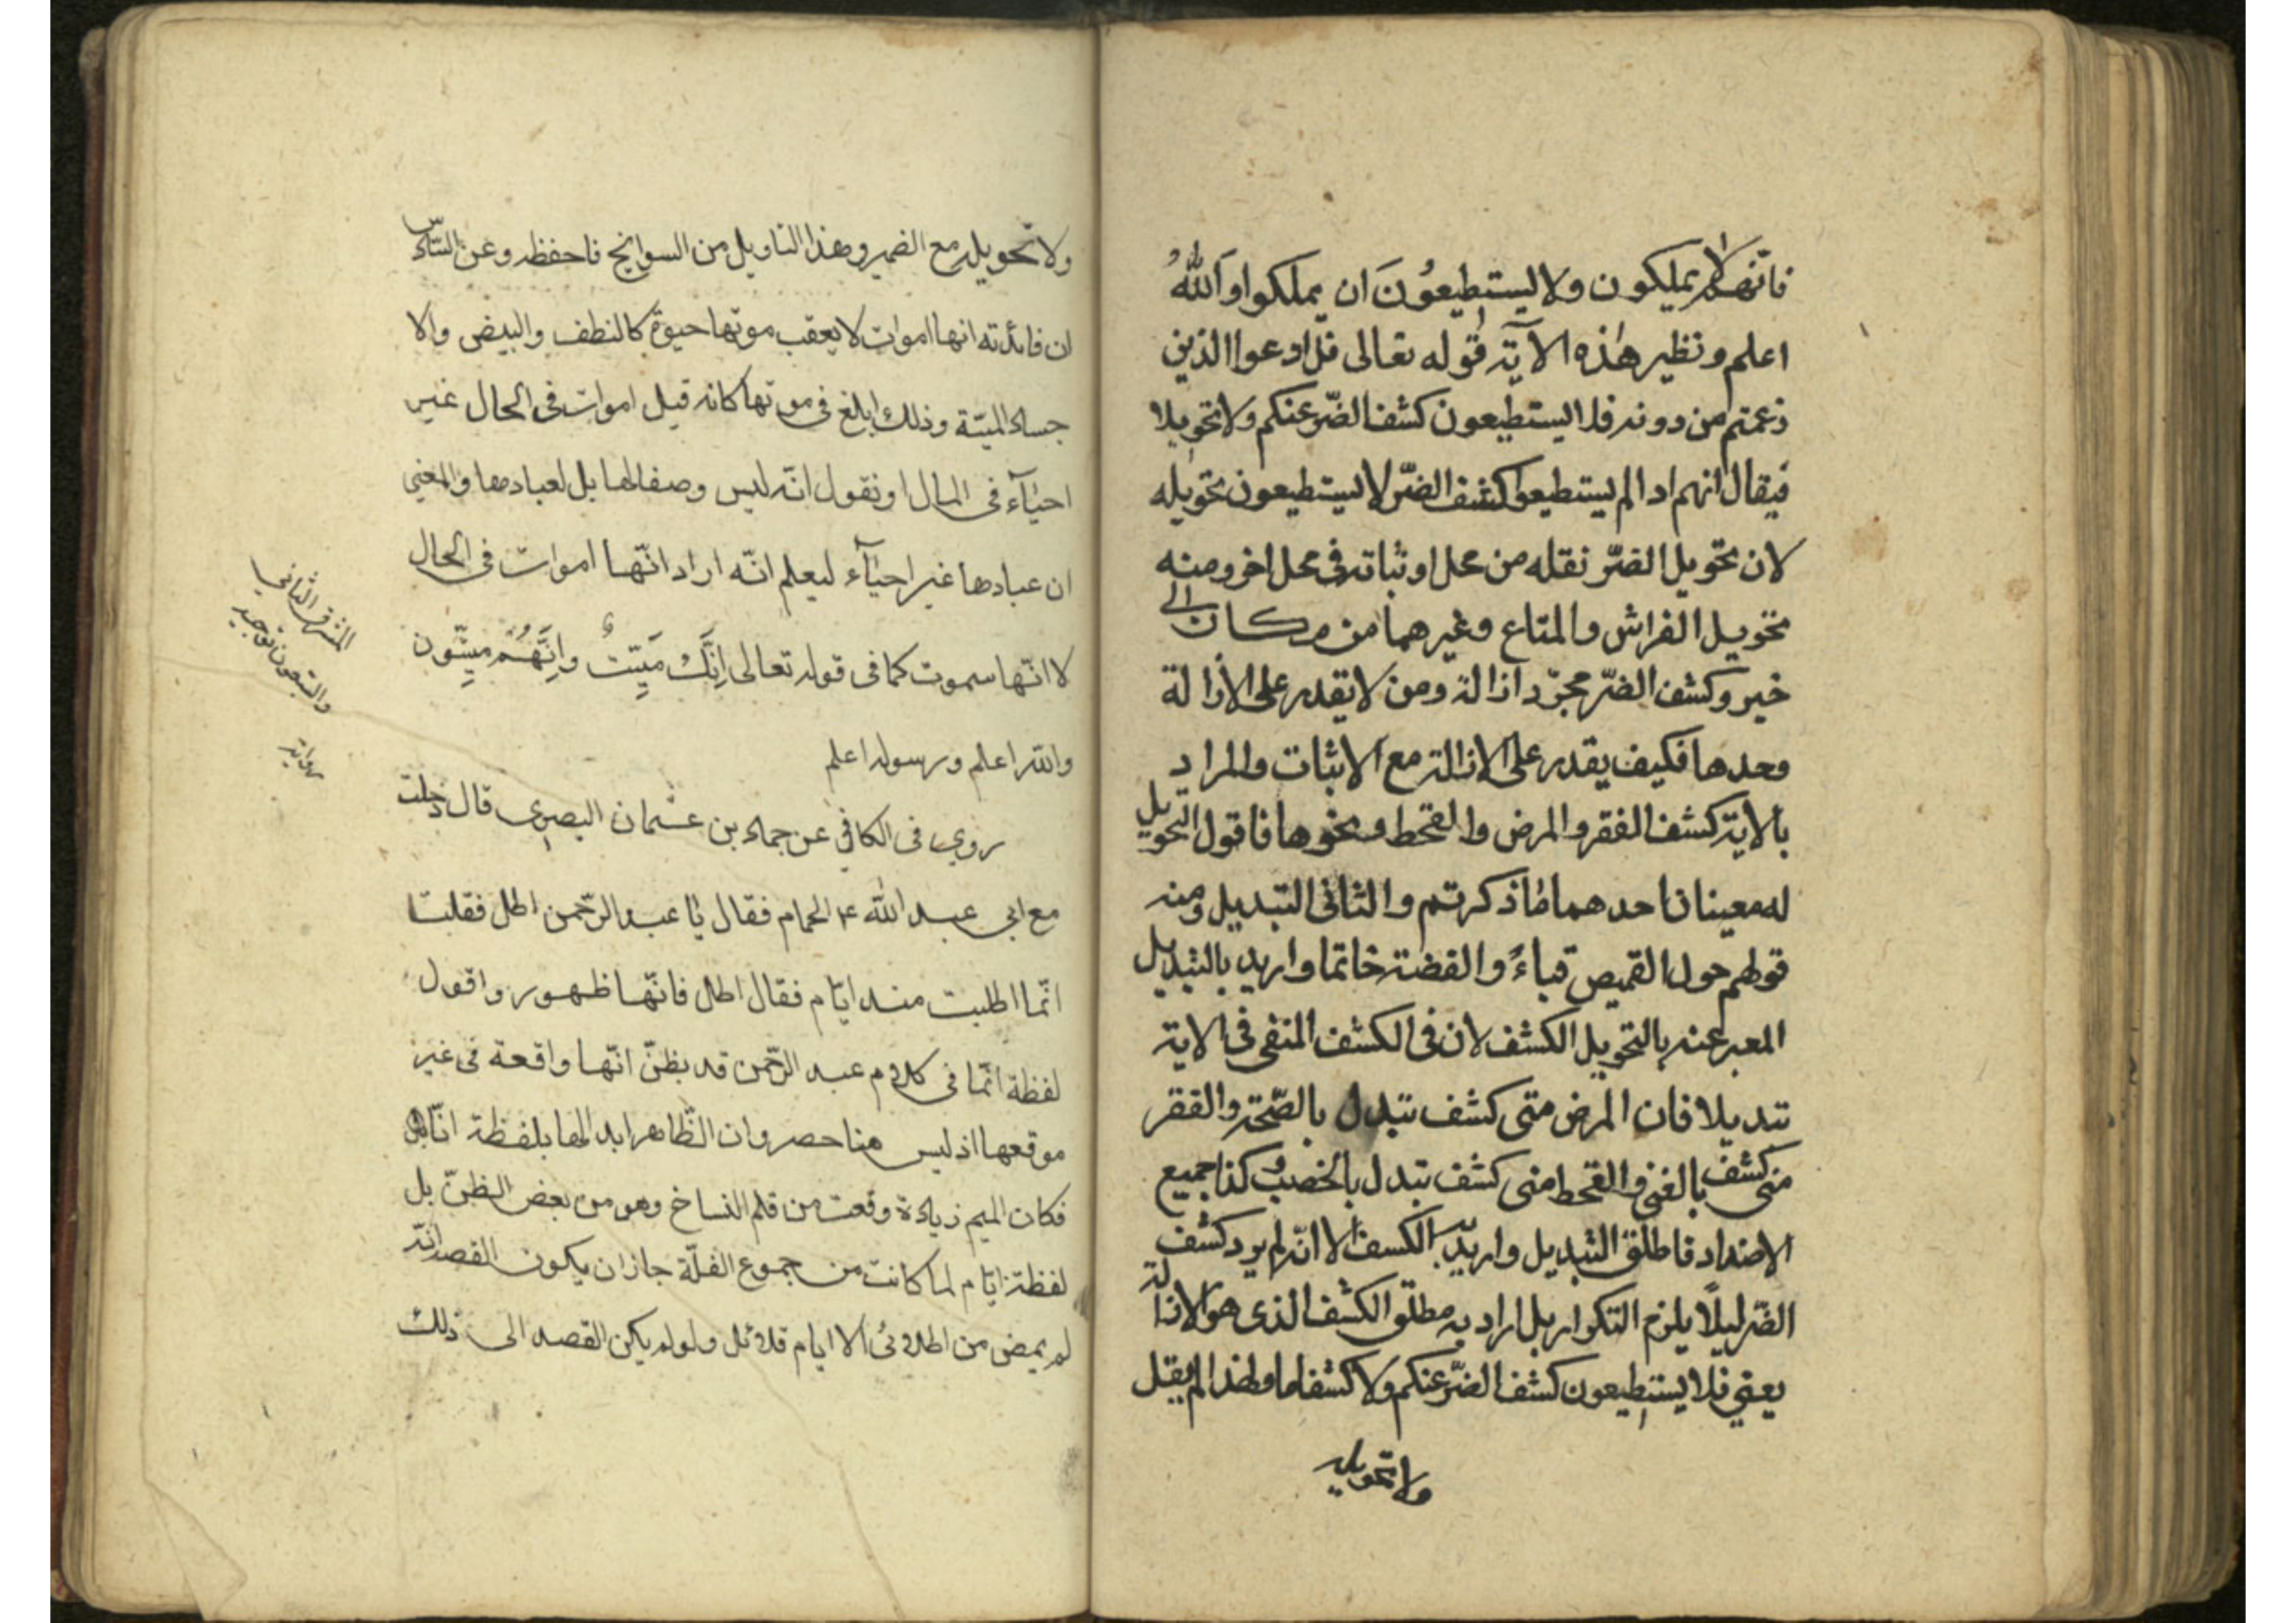 فانهم لا يملكون ولا يستطيعُونَ ان يملكوا واَللّٰهُ
اعلم ونظير هٰذه الآية قوله تعالى قل ادعوا الذين
زعمتم من دونه فلا يستطيعون كشف الضّر عنكم ولا تحويلا
فيقال انهم اذا لم يستطيعوا كشف الضّر لا يستطيعون تحويله
لان تحويل الضّر نقله من محل اوثباته فى محل اخر ومنه
تحويل الفراش والمتاع وغيرهما من مكان الى
خير وكشف الضّر مجرّد ازالة ومن لا يقدر على الازالة
وحدها فكيف يقدر على الازالة مع الاثبات والمراد
بالاية كشف الفقر والمرض والقحط ونحوها فاقول التحويل
له معينان احدهما ما ذكرتم والثانى التبديل ومنه
قولهم حول القميص قباءً والفضة خاتما واريد بالتبديل
المعبر عنه بالتحويل الكشف لان فى الكشف المنفى فى الاية
تبديلا فان المرض متى كشف تبدل بالصّحة والفقر
متى كشف بالغنى والقحط متى كشف تبدل بالخصب وكذا جميع
الاضداد فاطلق التبديل واريد به الكسف الا انّه لم يرد كشف
الضّر ليلًا يلزم التكرار بل اراد به مطلق الكشف الذى هو الازالة
يعنى فلا يستطيعون كشف الضّر عنكم ولا كشفا ما ولهذا لم يقل
ولا تحويله
ولا تحويله مع الضمير وهذا التاويل من السوانح فاحفظه وعن الثّانى
ان فائدته انها اموات لا يعقب موتها حيوة كالنطف والبيض والا
جساد الميتة وذلك ابلغ فى موتها كانه قيل اموات فى الحال غير
احيآء فى المال او نقول انّه ليس وصفا لها بل لعبادها والمعنى
ان عبادها غير احيآء ليعلم انّه اراد انّها اموات فى الحال
لا انّها ستموت كما فى قوله تعالى اِنَّكَ مَيِّتٌ وَاِنَّهُمْ ميِّتون
والله اعلم ورسوله اعلم
روى فى الكافى عن حماد بن عثمان البصرى قال دخلت
مع ابى عبد اللّٰه ع الحمام فقال يا عبد الرّحمن اطل فقلت
انّما اطليت منذ ايّام فقال اطل فانّها طهور واقول
لفظة انّما فى كلام عبد الرّحمن قد يظنّ انّها واقعة فى غير
موقعها اذ ليس هنا حصر وان الظّاهر ابدالها بلفظة انّا
فكان الميم زيادة وقعت من قلم النساخ وهو من بعض الظنّ بل
لفظة ايّام لما كانت من جموع القلّة جاز ان يكون القصد انّه
لم يمض من اطلائى الا ايام قلائل ولو لم يكن القصد الى ذلك
المشرق الثانى
والتسعون توجيه
رواية